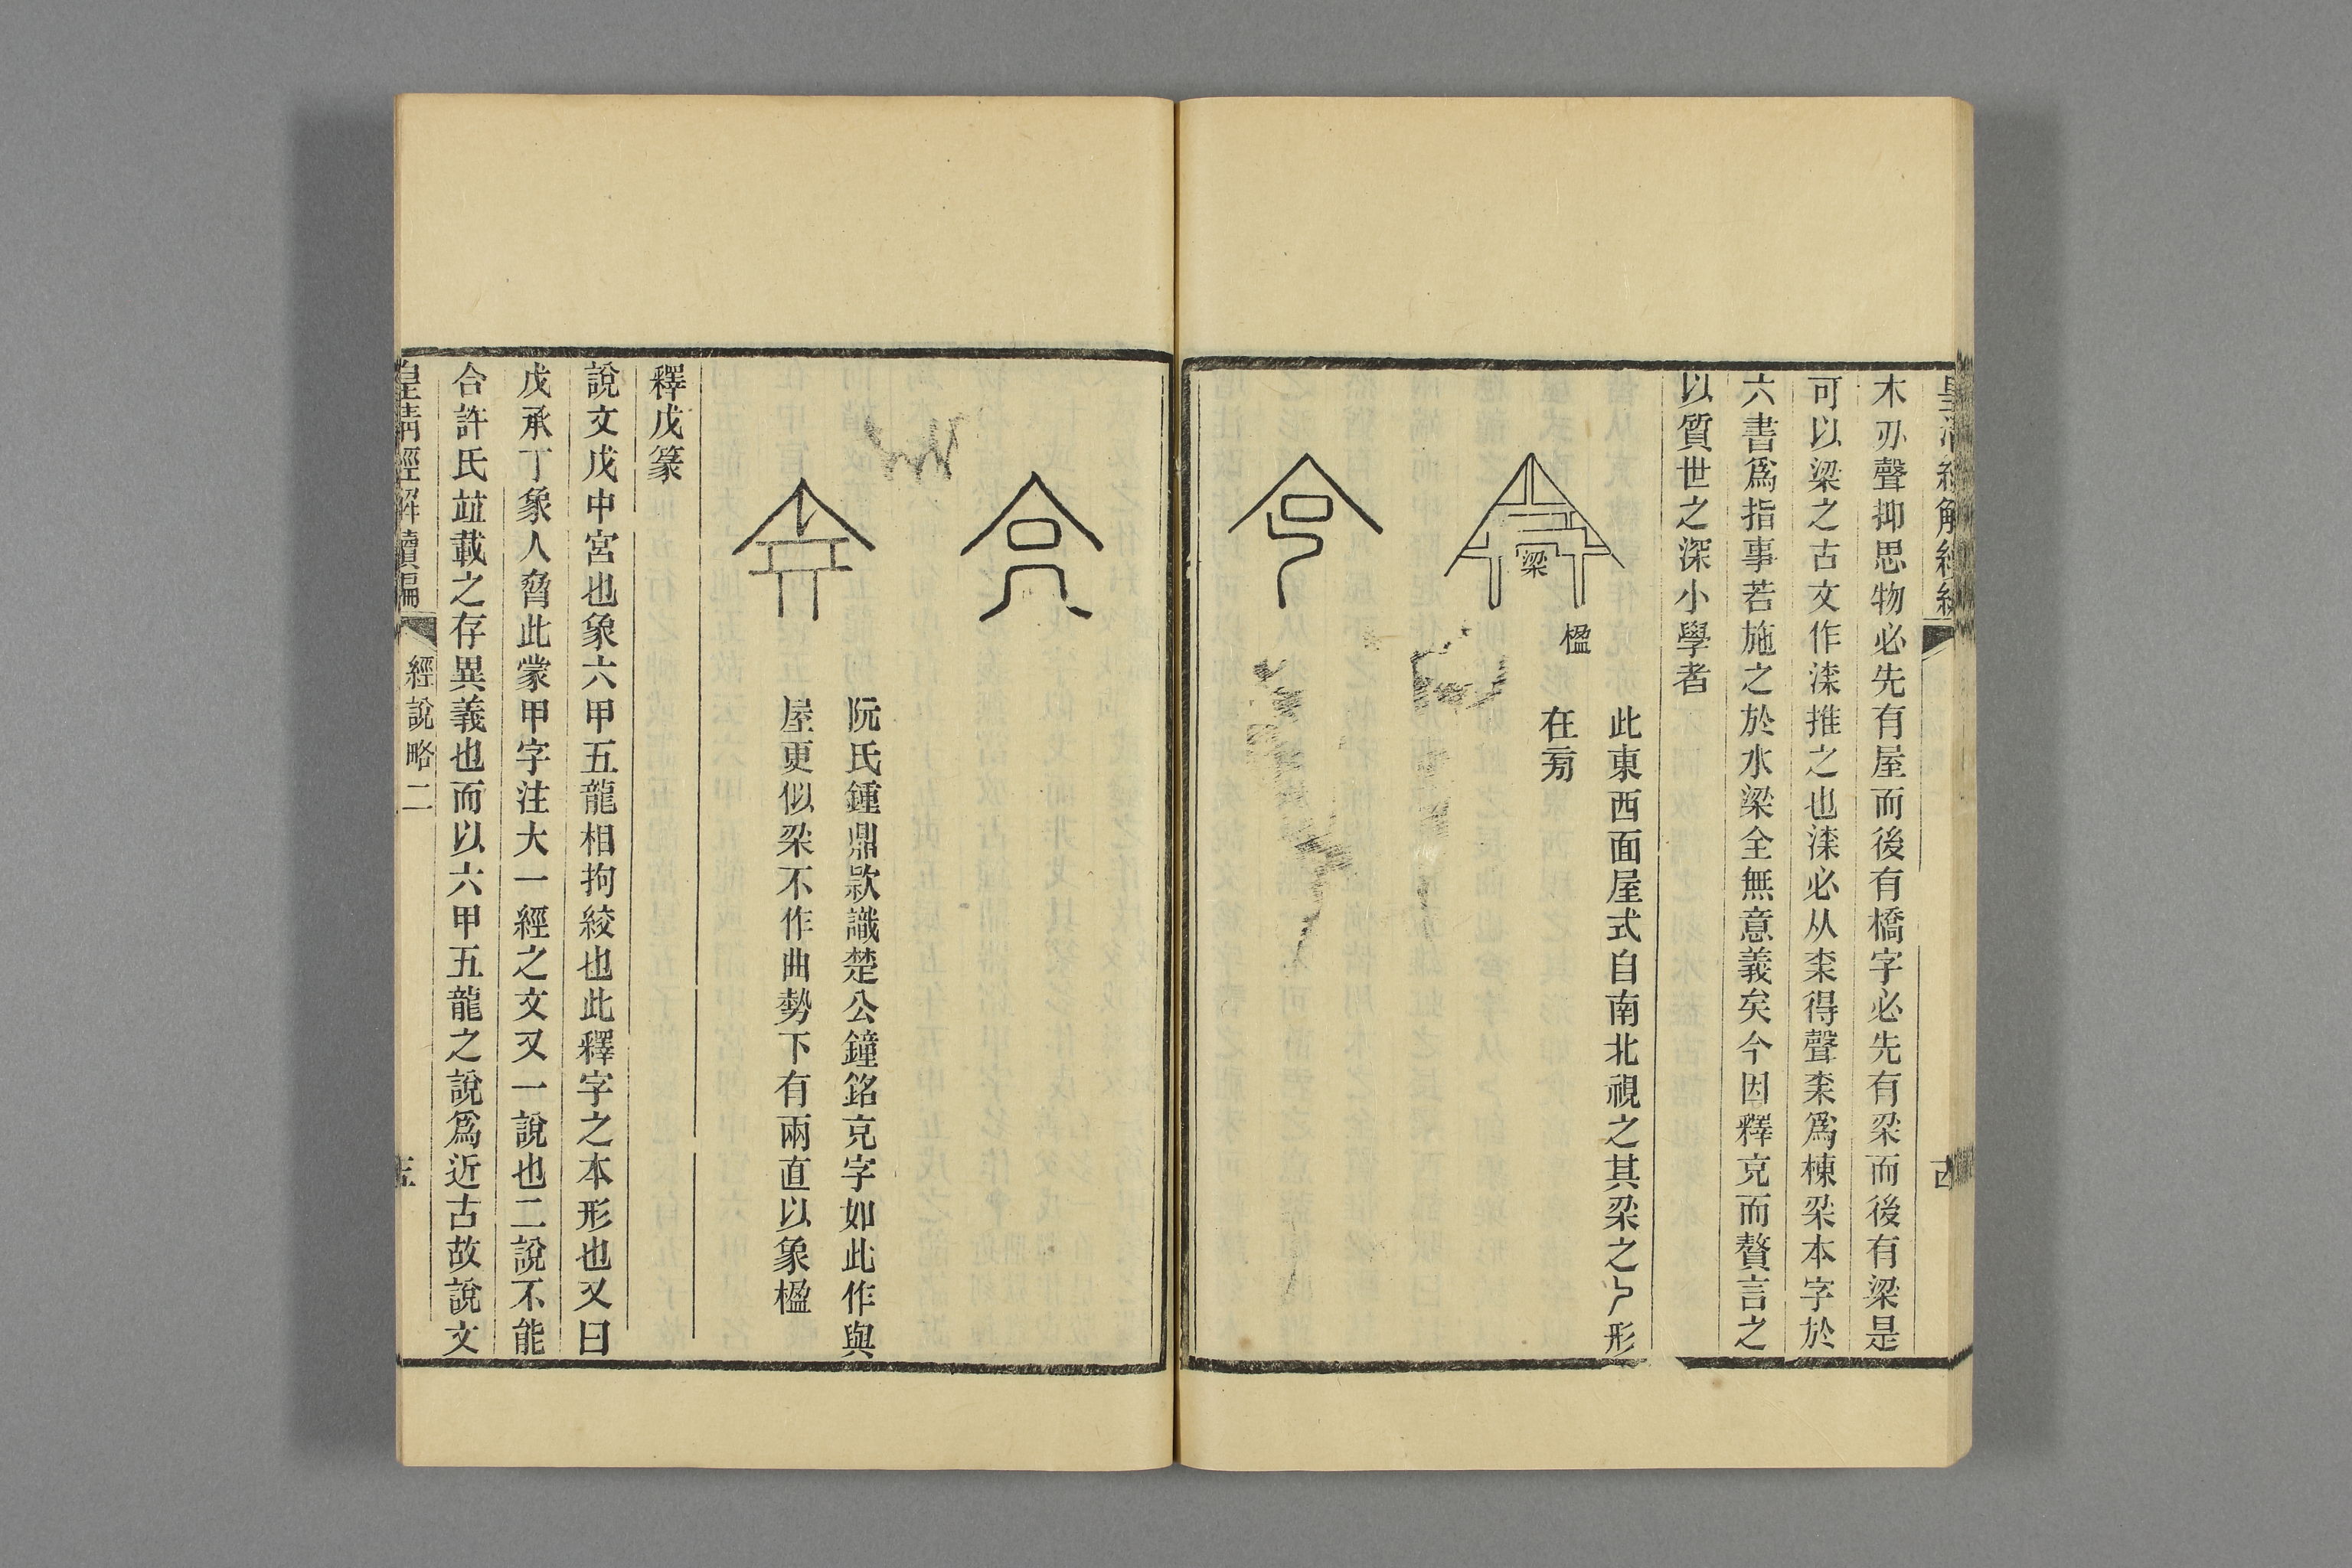 木刅聲抑思物必先有屋而後有橋字必先有梁而後有梁是
可以梁之古文作渿推之也渿必从柰得聲柰爲棟梁本字於
六書爲指事若施之於水梁全無意義矣今因釋克而贅言之
以質世之深小學者
梁
楹
此東西面屋式自南北視之其梁之形
在㫄
阮氏鍾鼎款識楚公鐘銘克字如此作與
屋更似梁不作曲勢下有兩直以象楹
釋戊篆
說文戊中宮也象六甲五龍相拘絞也此釋字之本形也又曰
戊承丁象人脅此蒙甲字注大一經之文又一說也二說不能
合許氏竝載之存異義也而以六甲五龍之說爲近古故說文
皇淸經解續編
經說略二